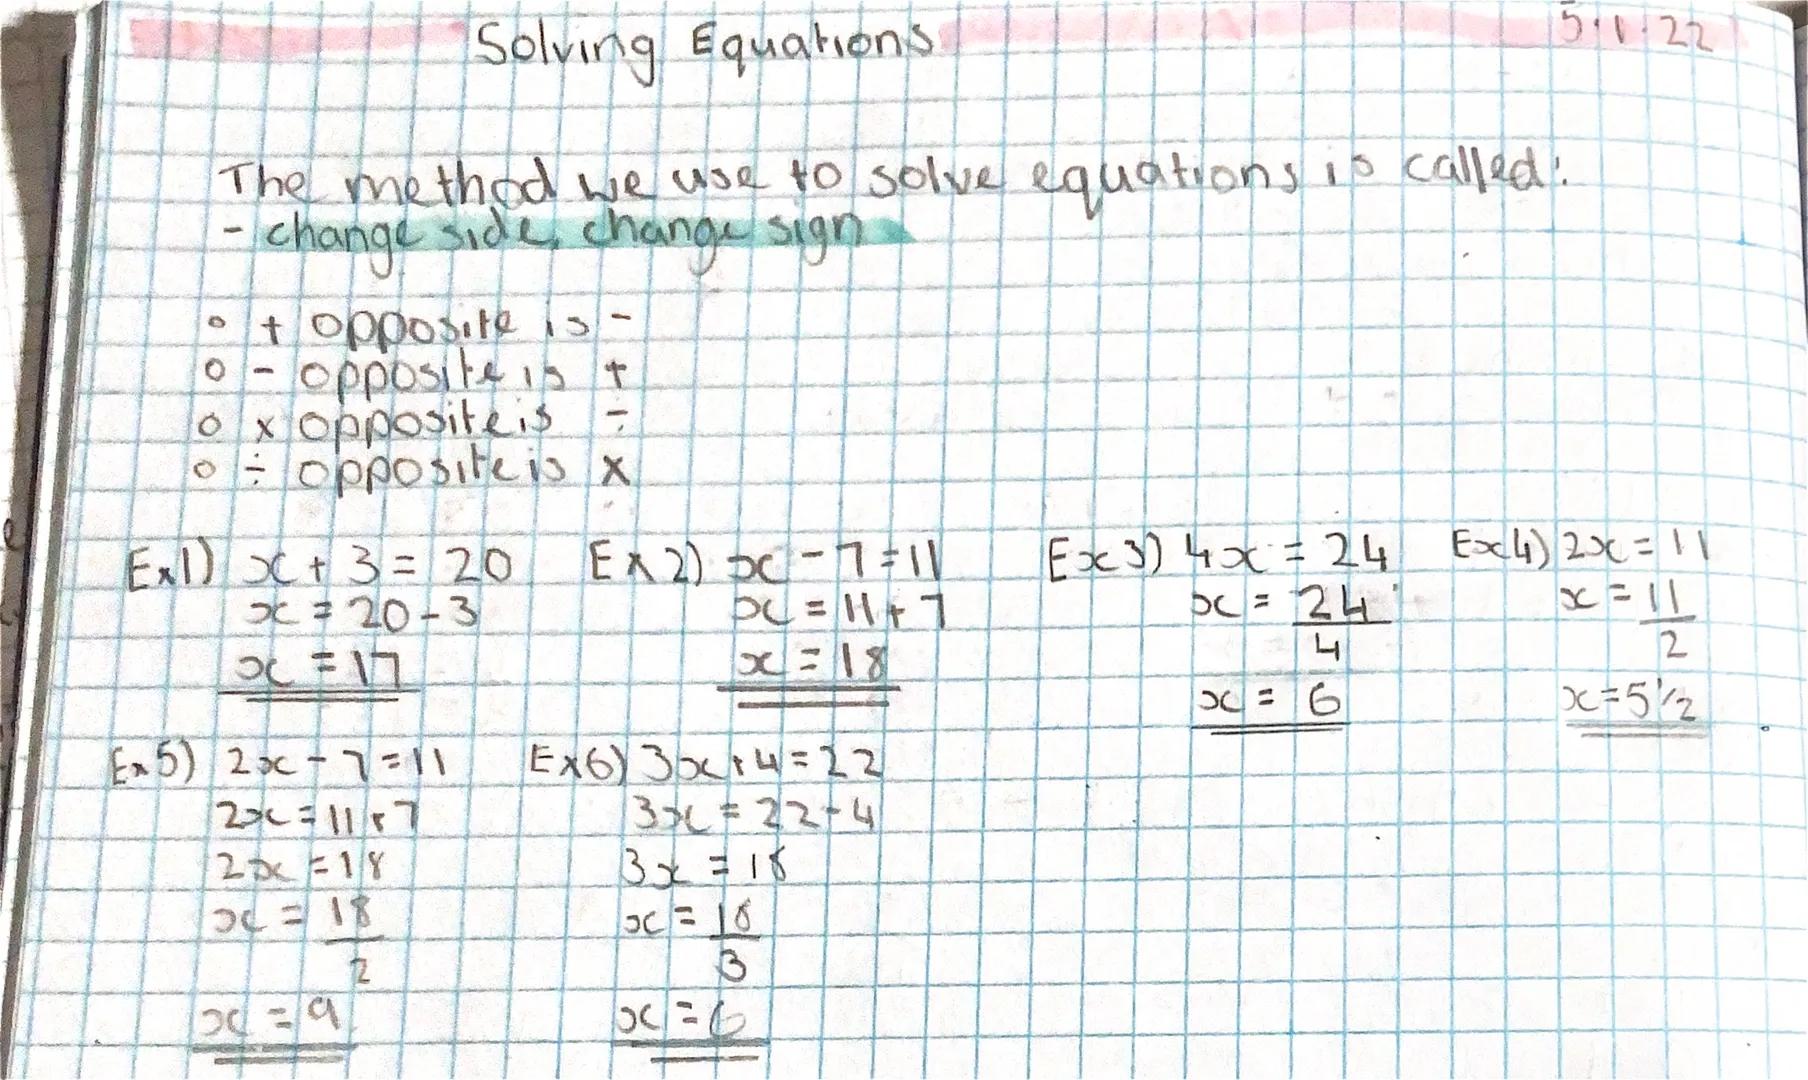 Solving Equations 5.1.22
The method we use to solve equations is called:
- change side, change sign
o + opposite is -
o - opposite is +
o x opposite is ÷
o ÷ opposite is x
Ex1) x + 3 = 20 Ex2) x - 7 = 11 Ex3) 4x = 24 Ex4) 2x = 11
x = 20 - 3 x = 11 + 7 x = 24/4 x = 11/2
x = 17 x = 18 x = 6 x = 5 1/2
Ex5) 2x - 7 = 11 Ex6) 3x + 4 = 22
2x = 11 + 7 3x = 22 - 4
2x = 18 3x = 18
x = 18/2 x = 18/3
x = 9 x = 6